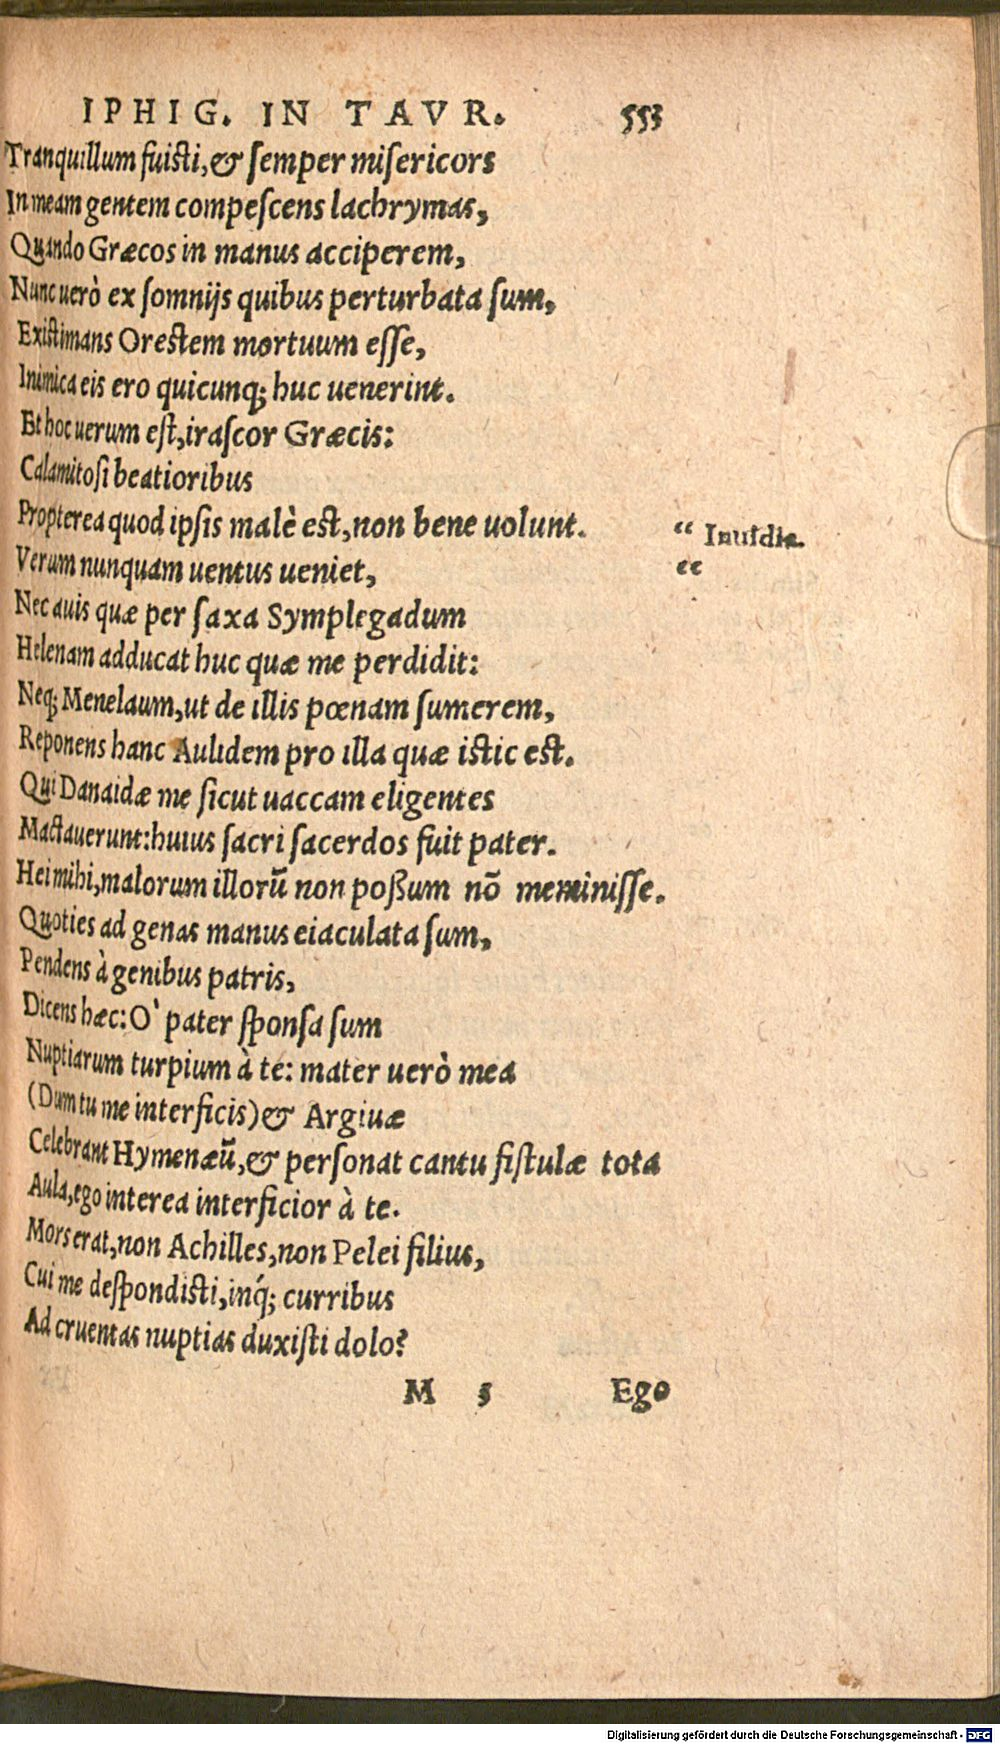 IPHIG. IN TAVR. 553
Tranquillum fuisti, & semper misericors
In meam gentem compescens lachrymas,
Quando Græcos in manus acciperem,
Nunc uerò ex somnijs quibus perturbata sum,
Existimans Orestem mortuum esse,
Inimica eis ero quicunq; huc uenerint.
Et hoc uerum est, irascor Græcis:
Calamitosi beatioribus
Propterea quod ipsis malè est, non bene uolunt. “ Inuidia.
Verum nunquam uentus ueniet, “
Nec auis quæ per saxa Symplegadum
Helenam adducat huc quæ me perdidit:
Neq; Menelaum, ut de illis pœnam sumerem,
Reponens hanc Aulidem pro illa quæ istic est.
Qui Danaidæ me sicut uaccam eligentes
Mactauerunt: huius sacri sacerdos fuit pater.
Hei mihi, malorum illorũ non poßum nõ meminisse.
Quoties ad genas manus eiaculata sum,
Pendens à genibus patris,
Dicens hæc: O` pater sponsa sum
Nuptiarum turpium à te: mater uerò mea
(Dum tu me interficis) & Argiuæ
Celebrant Hymenæũ, & personat cantu fistulæ tota
Aula, ego interea interficior à te.
Mors erat, non Achilles, non Pelei filius,
Cui me despondisti, inq́; curribus
Ad cruentas nuptias duxisti dolo?
M 5 Ego
Digitalisierung gefördert durch die Deutsche Forschungsgemeinschaft - DFG